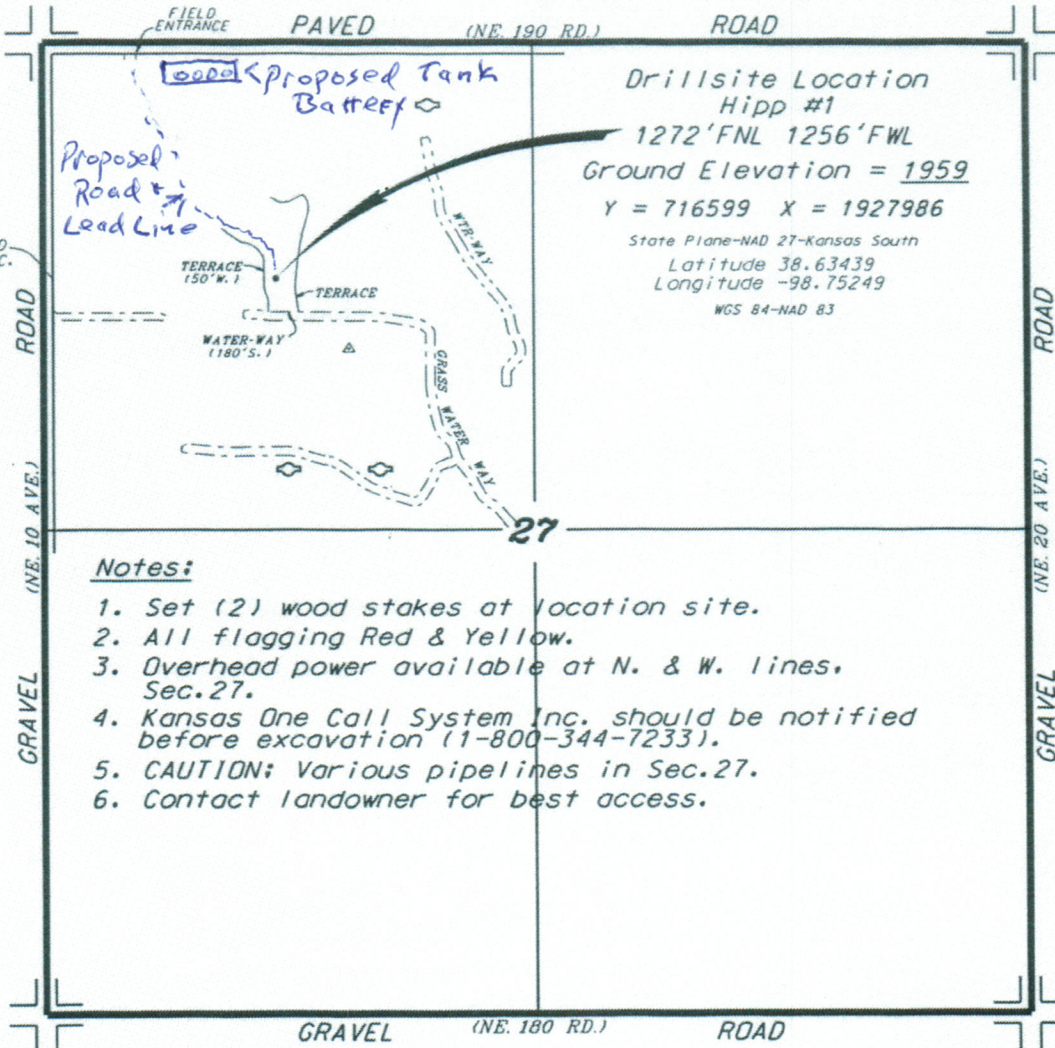 FIELD
ENTRANCE
PAVED
(NE. 190 RD.)
ROAD
Proposed Tank
Battery
Drillsite Location
Hipp #1
1272'FNL 1256'FWL
Ground Elevation = 1959
Y = 716599 X = 1927986
State Plane-NAD 27-Kansas South
Latitude 38.63439
Longitude -98.75249
WGS 84-NAD 83
Proposed
Road &
Lead Line
TERRACE
(50'W.)
TERRACE
WATER-WAY
(180'S.)
WTR-WAY
GRASS WATER WAY
ROAD
(NE. 10 AVE.)
GRAVEL
ROAD
(NE. 20 AVE.)
GRAVEL
27
Notes:
1. Set (2) wood stakes at location site.
2. All flagging Red & Yellow.
3. Overhead power available at N. & W. lines.
Sec.27.
4. Kansas One Call System Inc. should be notified
before excavation (1-800-344-7233).
5. CAUTION: Various pipelines in Sec.27.
6. Contact landowner for best access.
GRAVEL
(NE. 180 RD.)
ROAD